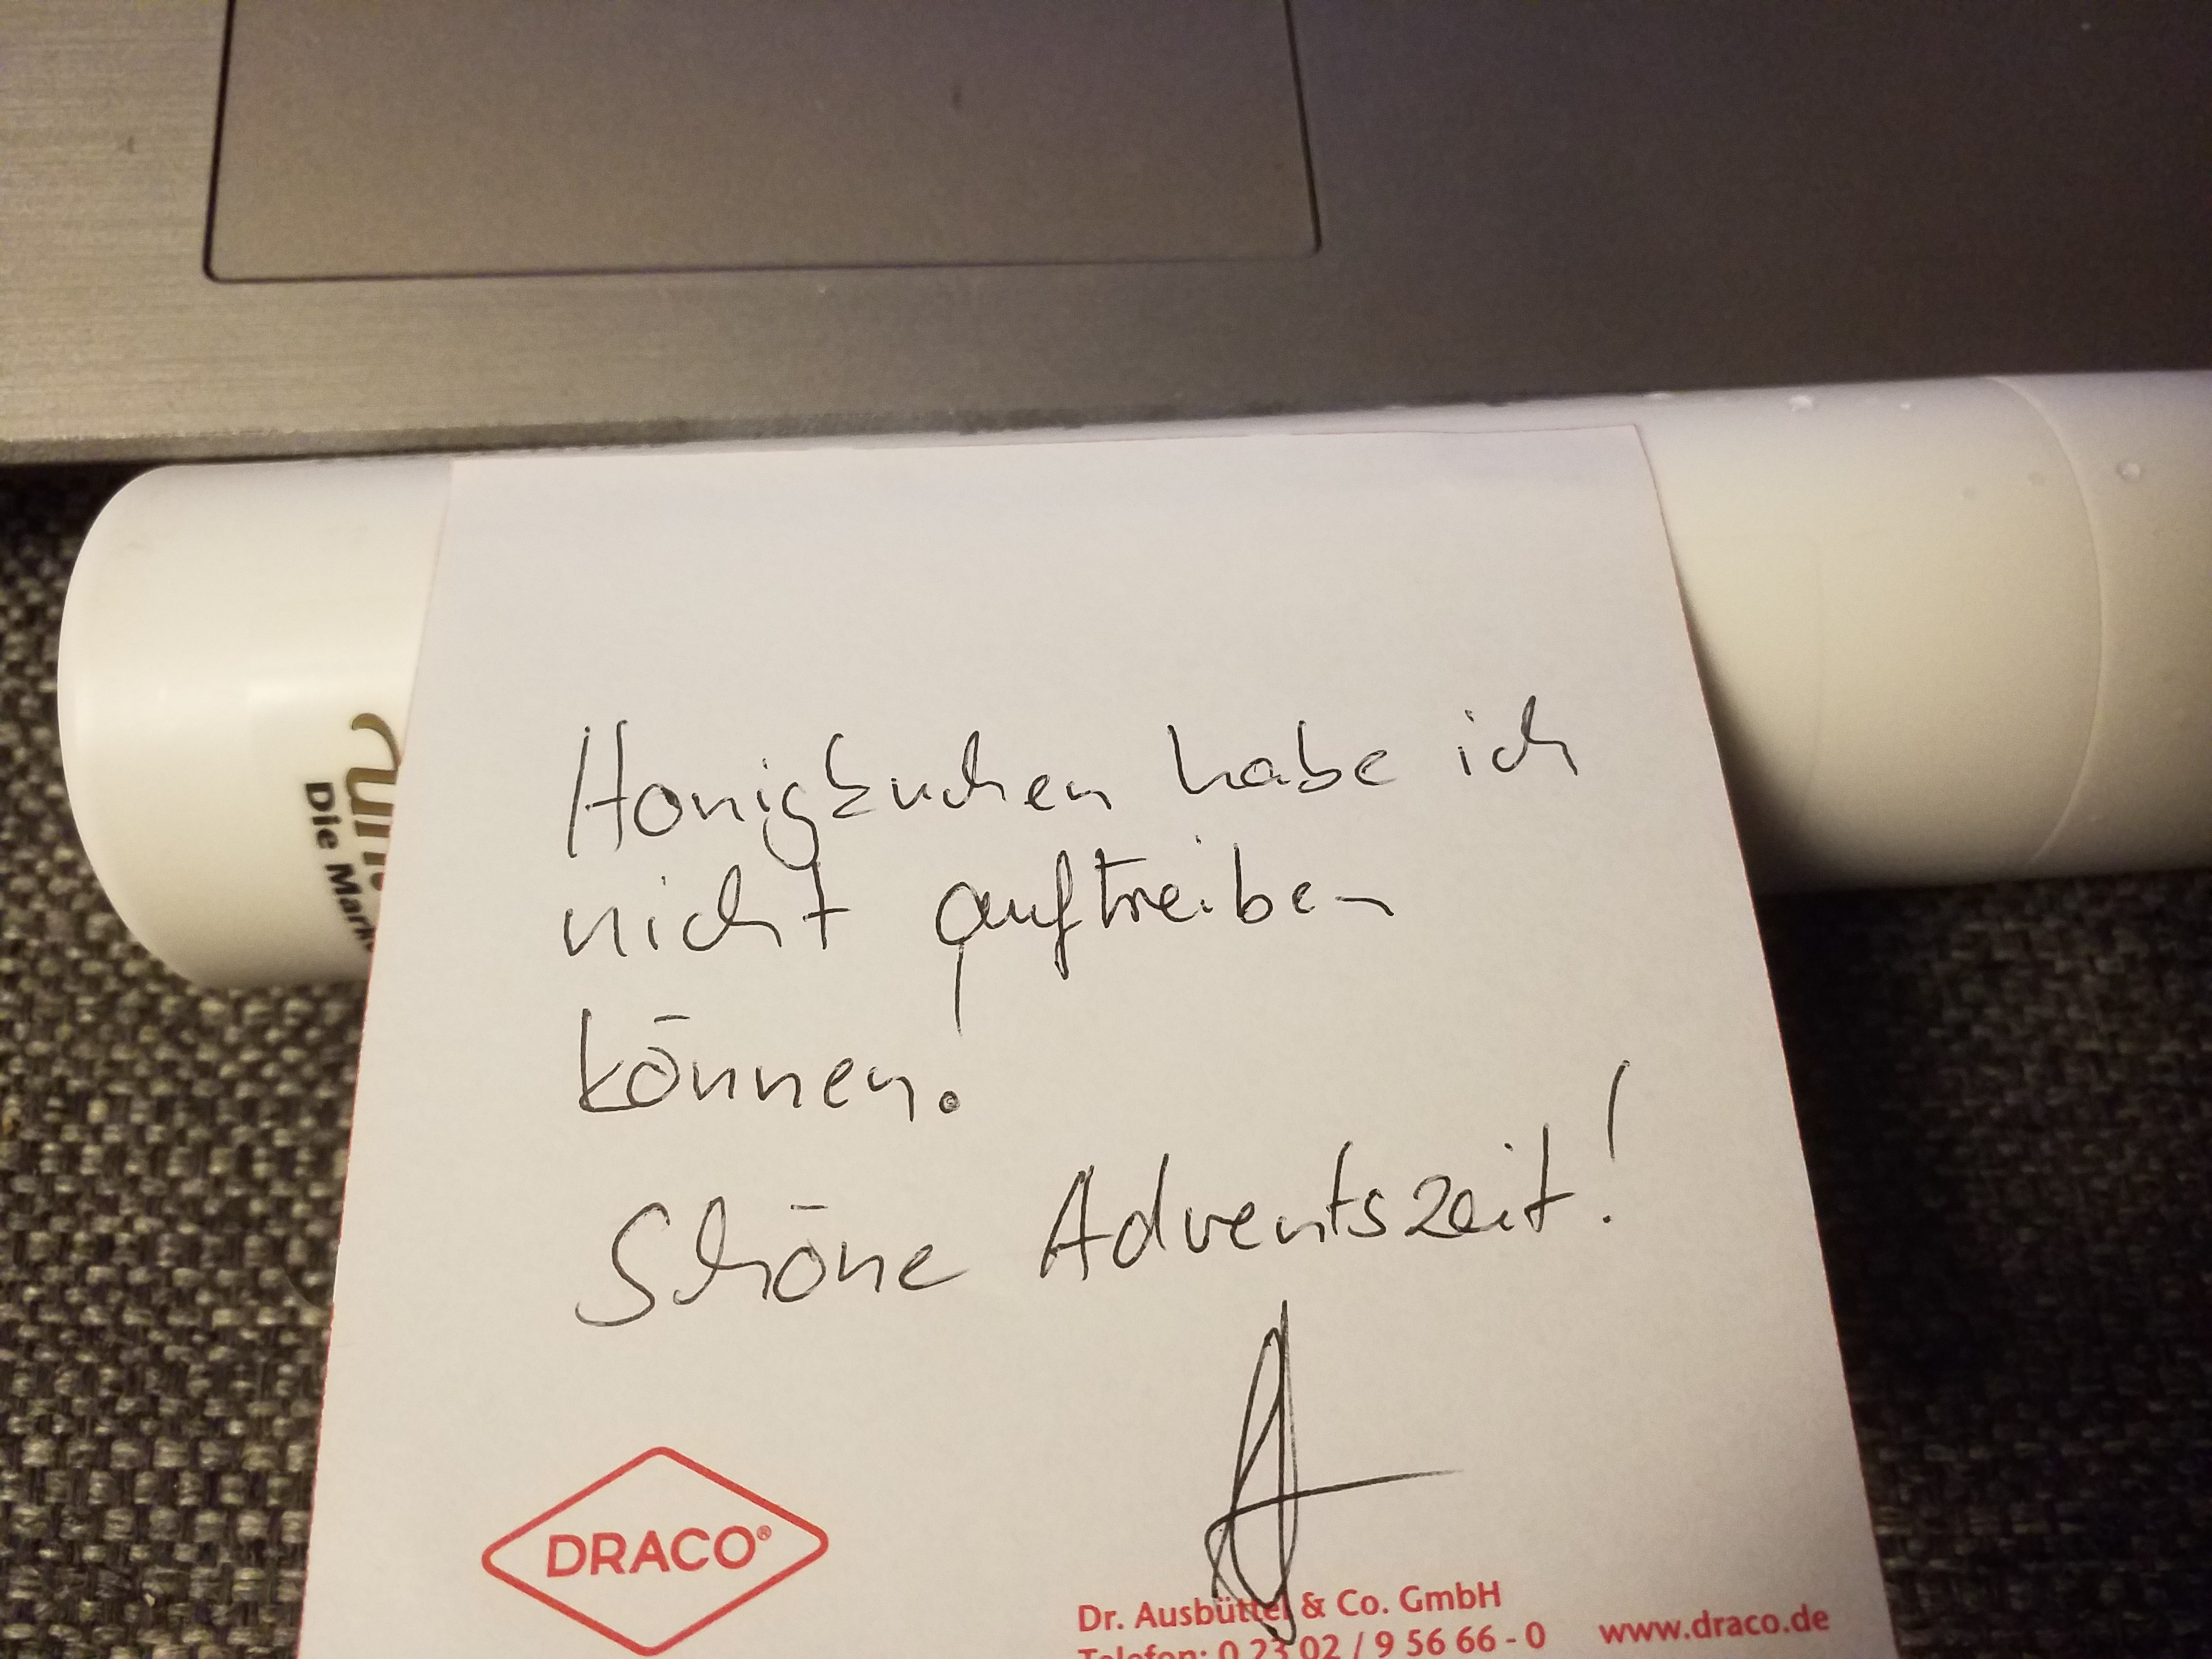 Die Mar
Honigkuchen habe ich
nicht auftreiben
können.
Schöne Adventszeit!
DRACO®
Dr. Ausbüttel & Co. GmbH
Telefon: 0 23 02 / 9 56 66 - 0 www.draco.de